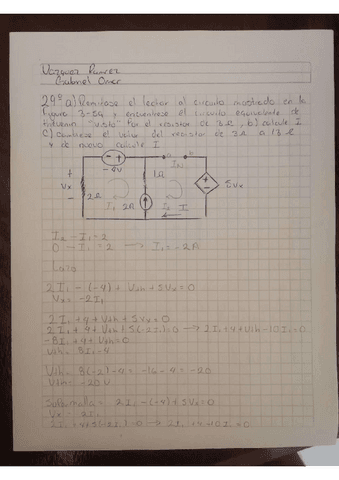 Vazquez Ramirez
Gabriel Omar
29º a) Remitase el lector al circuito mostrado en la
figura 3-59 y encuentrese el circuito equivalente de
"visto" por el resistor de 3Ω, b) calcule I
c) cambiese el valor del resistor de 3Ω a 13Ω
y de nuevo calcule I
- +
-4V
1Ω
a b
IN
+
Vx
-
2Ω
I1
2A
I2
I
+
-
5Vx
I2 - I1 = 2
0 - I1 = 2 → I1 = -2A
2I1 - (-4) + Vth + 5Vx = 0
Vx = -2I1
2I1 + 4 + Vth + 5Vx = 0
2I1 + 4 + Vth + 5(-2I1) = 0 → 2I1 + 4 + Vth - 10I1 = 0
-8I1 + 4 + Vth = 0
Vth = 8I1 - 4
Vth = 8(-2) - 4 = -16 - 4 = -20
Vth = -20V
2I1 - (-4) + 5Vx = 0
Vx = -2I1
2I1 + 4 + 5(-2I1) = 0 → 2I1 + 4 - 10I1 = 0